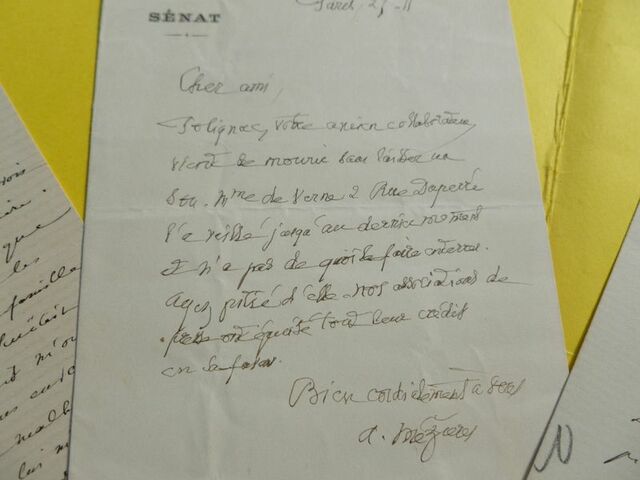 SÉNAT
Paris 25-11
Cher ami,
Polignac, votre ancien collaborateur,
vient de mourir sans laisser un
sou. Mme de Verne 2 Rue Duperré
l'a veillé jusqu'au dernier moment
et n'a pas de quoi le faire enterrer.
Ayez pitié d'elle nos associations de
presse ont épuisé tout leur crédit
en sa faveur.
Bien cordialement à vous
A. Mézières
que
les
famille
était